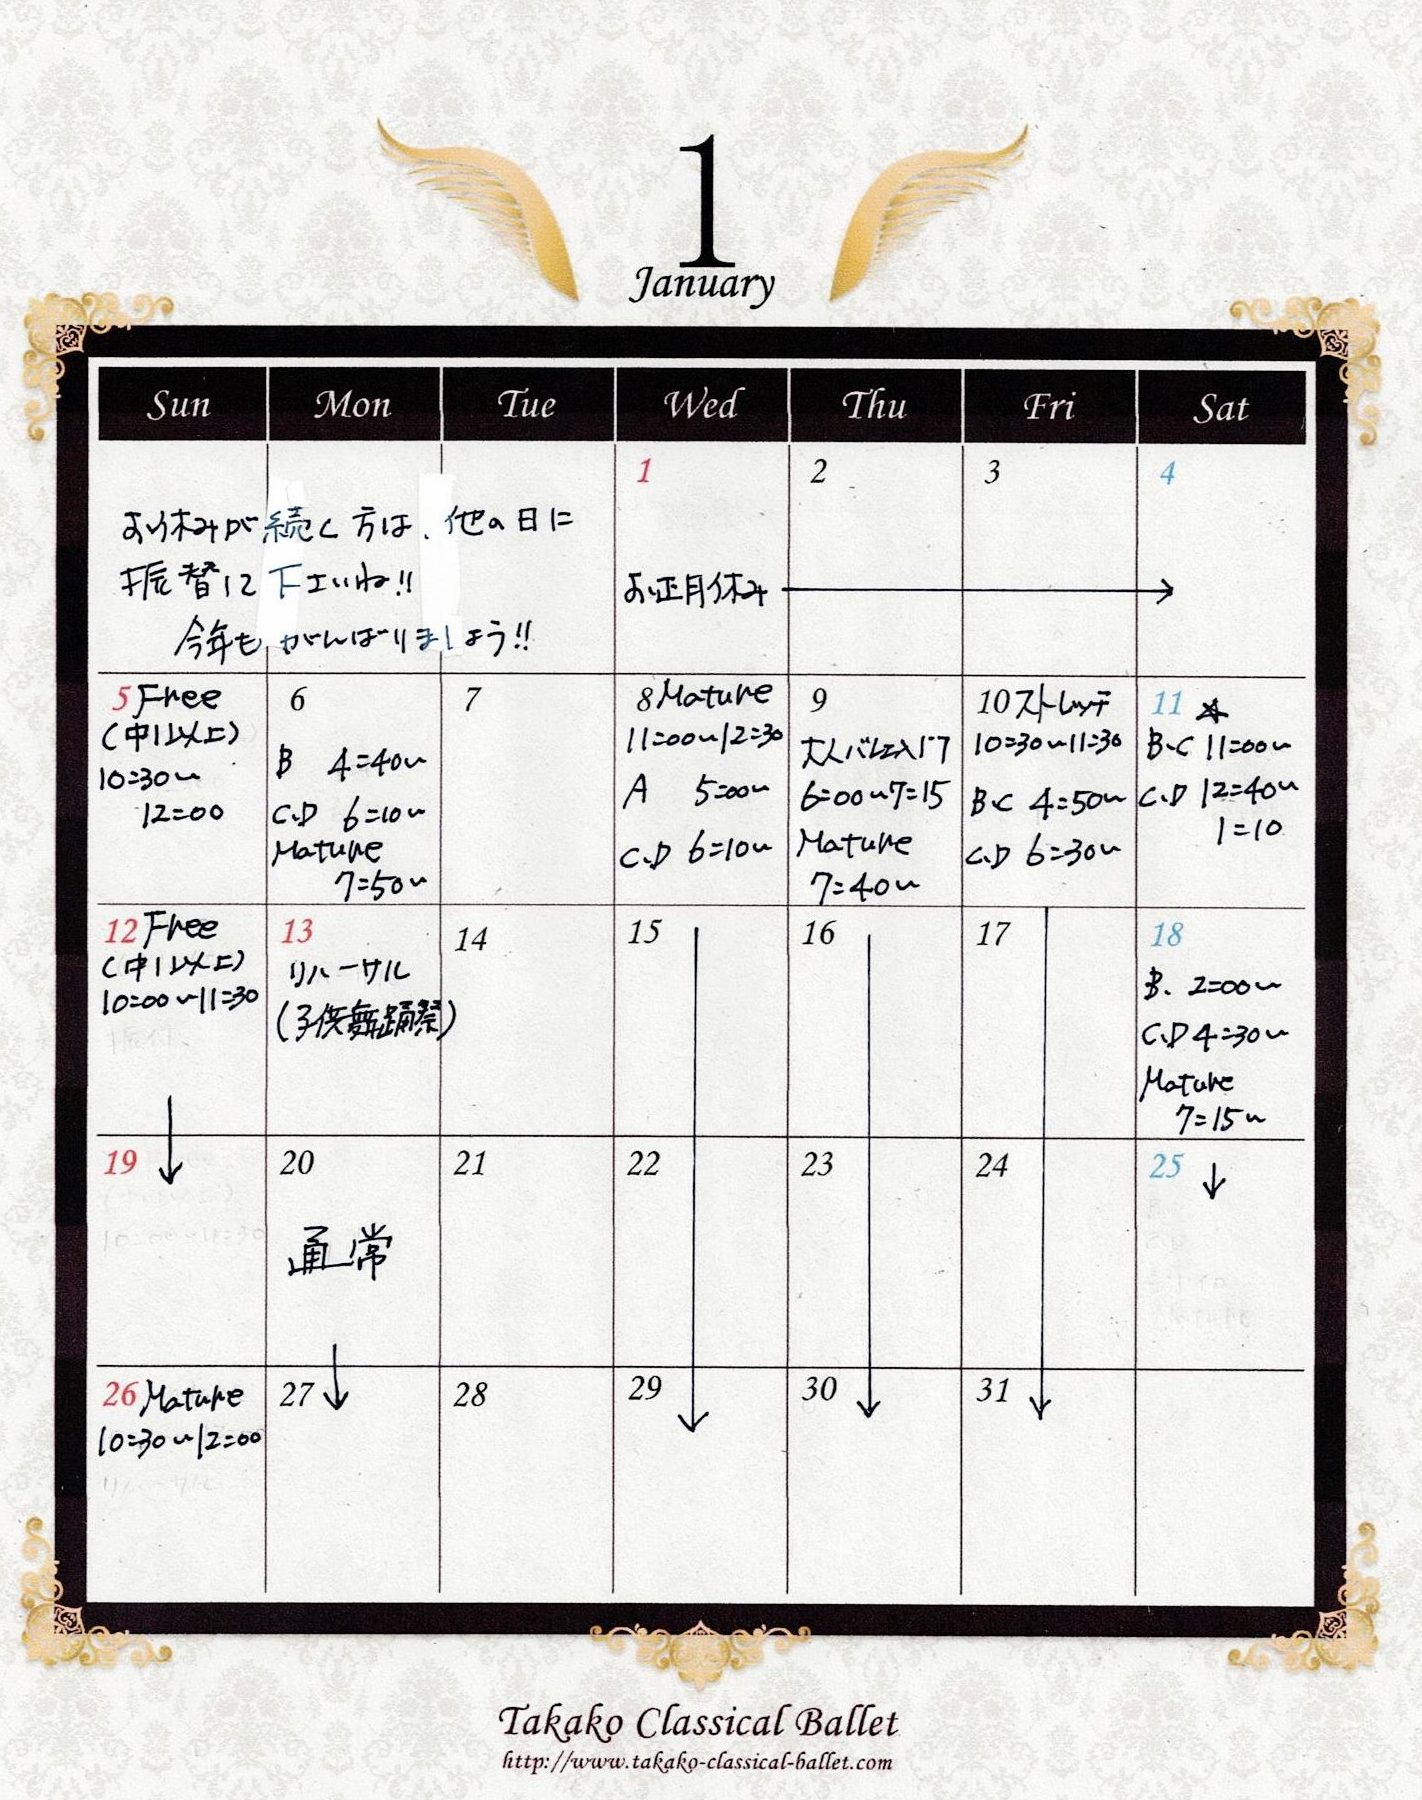 1
January
Sun Mon Tue Wed Thu Fri Sat
1 2 3 4
お休みが続く方は、他の日に
振替して下さいね!!
今年もがんばりましょう!!
お正月休み
5 Free
(中1以上)
10=30〜
12=00
6
B 4=40〜
C.D 6=10〜
Mature
7=50〜
7
8 Mature
11=00〜12=30
A 5=00〜
C.D 6=10〜
9
大人バレエ入門
6=00〜7=15
Mature
7=40〜
10 ストレッチ
10=30〜11=30
B.C 4=50〜
C.D 6=30〜
11 ☆
B.C 11=00〜
C.D 12=40〜
1=10
12 Free
(中1以上)
10=00〜11=30
13
リハーサル
(子供舞踊祭)
14
15
16
17
18
B. 2=00〜
C.D 4=30〜
Mature
7=15〜
19
20
通常
21
22
23
24
25
26 Mature
10=30〜12=00
27
28
29
30
31
Takako Classical Ballet
http://www.takako-classical-ballet.com